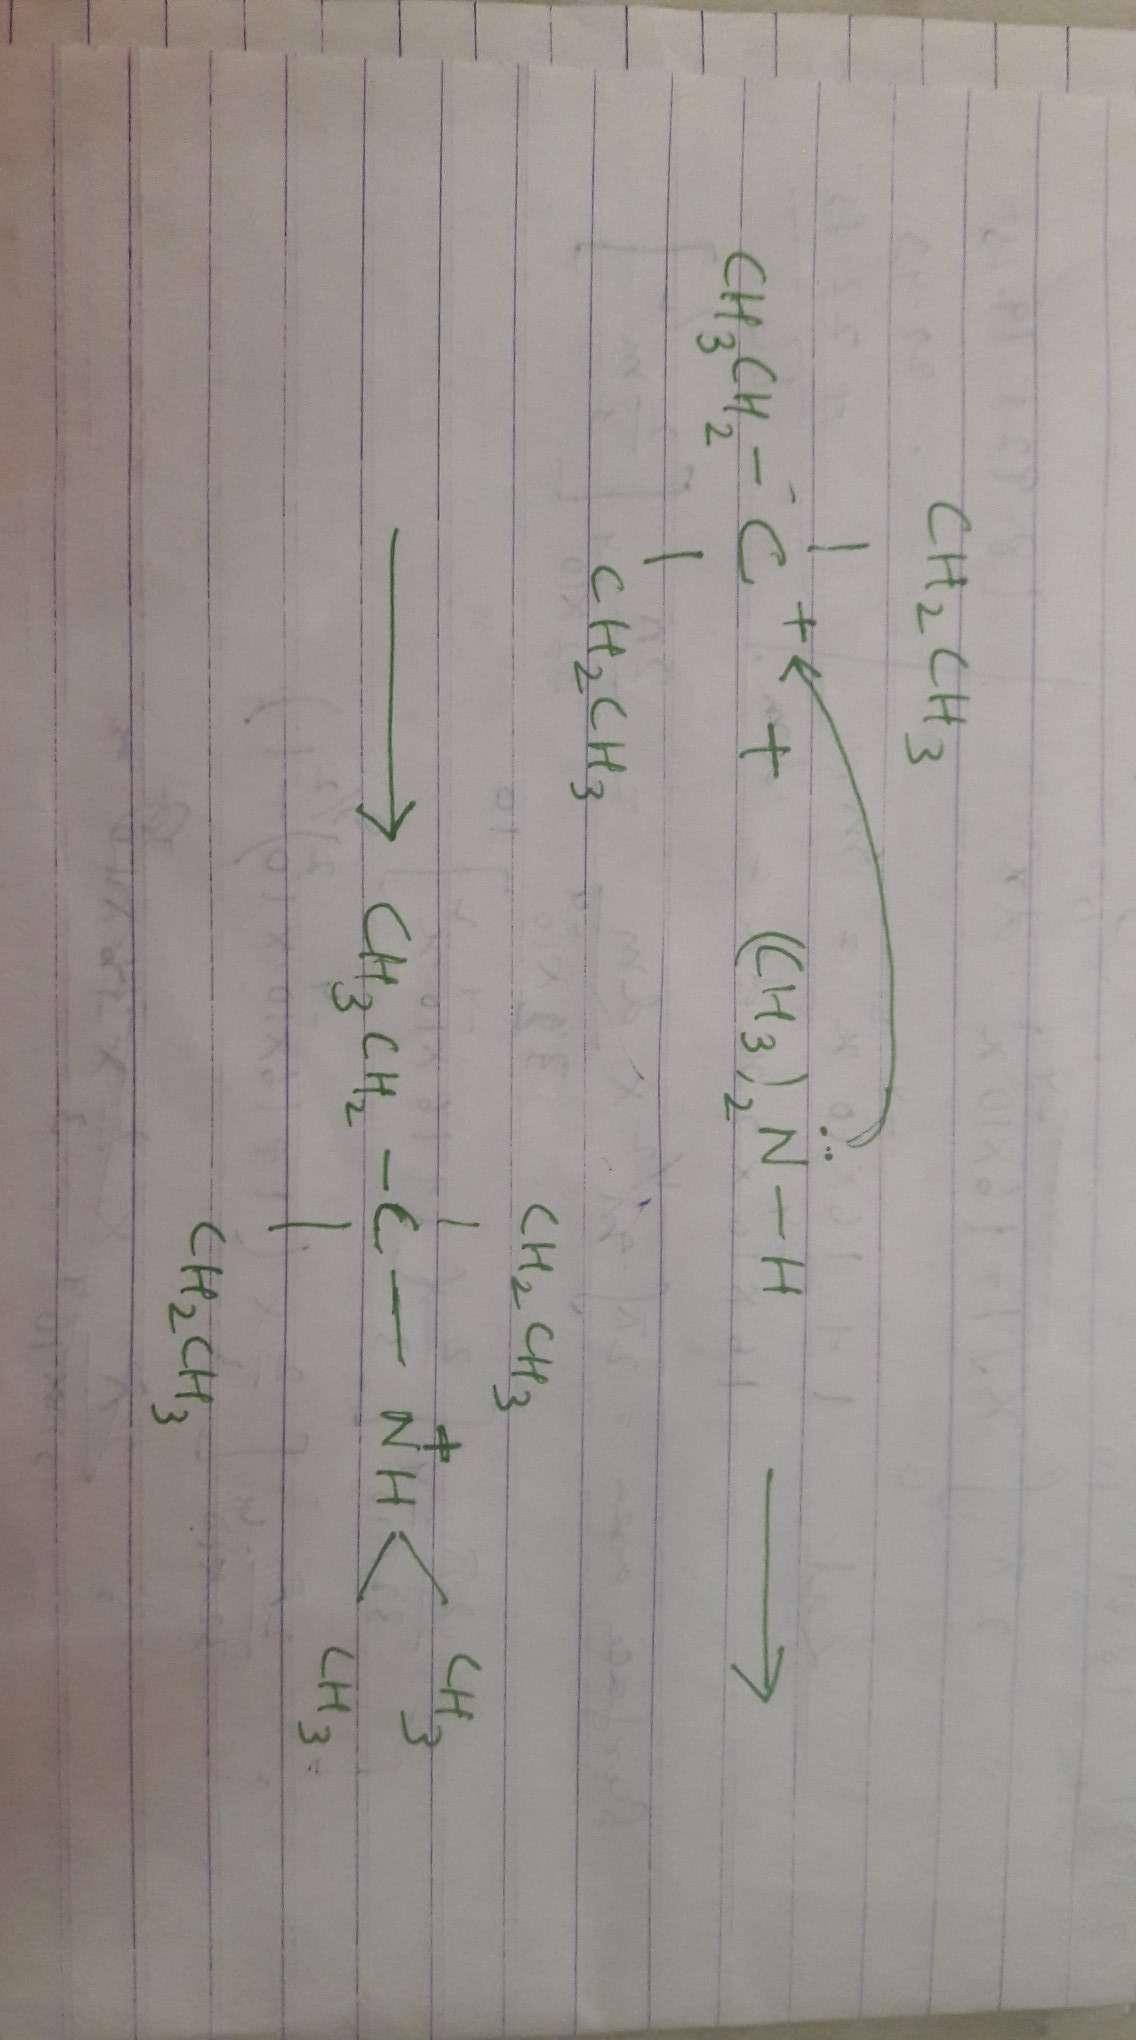 CH2CH3
CH3CH2 - C + + (CH3)2 N̈ - H →
CH2CH3
CH2CH3
→ CH3CH2 - C - N+H < CH3
CH3
CH2CH3